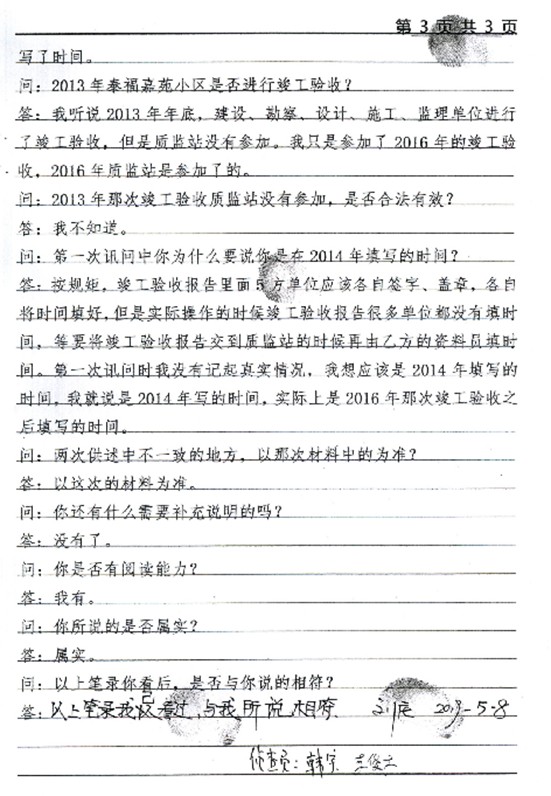 第 3 页 共 3 页
写了时间。
问：2013 年泰福嘉苑小区是否进行竣工验收？
答：我听说 2013 年年底，建设、勘察、设计、施工、监理单位进行
了竣工验收，但是质监站没有参加。我只是参加了 2016 年的竣工验
收，2016 年质监站是参加了的。
问：2013 年那次竣工验收质监站没有参加，是否合法有效？
答：我不知道。
问：第一次讯问中你为什么要说你是在 2014 年填写的时间？
答：按规矩，竣工验收报告里面 5 方单位应该各自签字、盖章，各自
将时间填好，但是实际操作的时候竣工验收报告很多单位都没有填时
间，等要将竣工验收报告交到质监站的时候再由乙方的资料员填时
间。第一次讯问时我没有记起真实情况，我想应该是 2014 年填写的
时间，我就说是 2014 年写的时间，实际上是 2016 年那次竣工验收之
后填写的时间。
问：两次供述中不一致的地方，以那次材料中的为准？
答：以这次的材料为准。
问：你还有什么需要补充说明的吗？
答：没有了。
问：你是否有阅读能力？
答：我有。
问：你所说的是否属实？
答：属实。
问：以上笔录你看后，是否与你说的相符？
答：以上笔录我已看过，与我所说相符 5-8
侦查员：韩